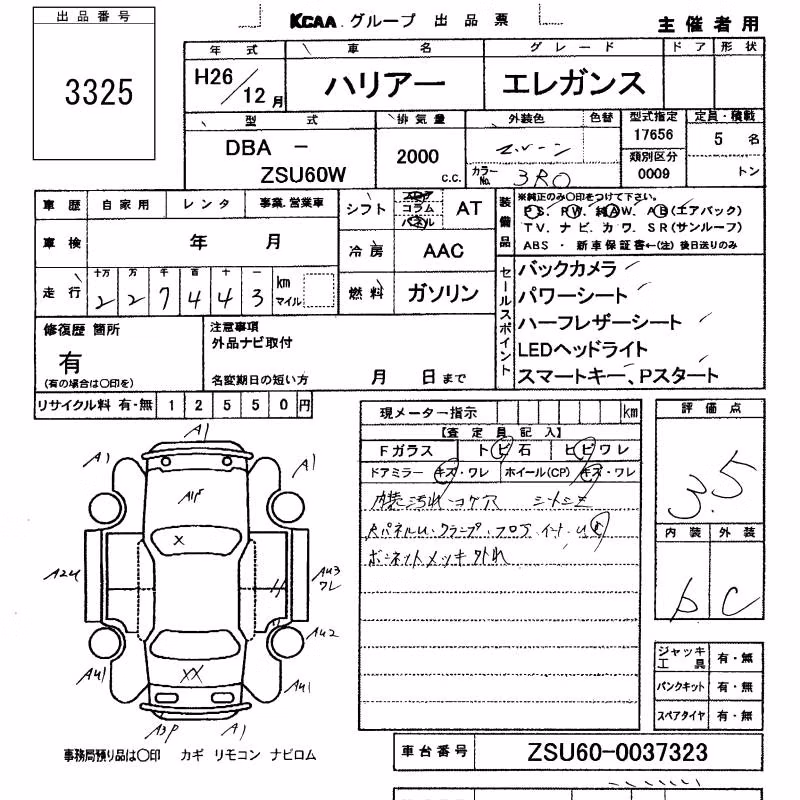 出品番号
3325
KCAA グループ 出品票
主催者用
年式 車名 グレード ドア 形状
H26/12月 ハリアー エレガンス
型式 排気量 外装色 色替 型式指定 定員・積載
DBA - 2000 c.c. 17656 5名
ZSU60W カラーNo. 3R0 類別区分 0009 トン
車歴 自家用 レンタ 事業.営業車
車検 年 月
走行 十万 万 千 百 十 一
2 2 7 4 4 3 km マイル
シフト フロア コラム パネル AT
冷房 AAC
燃料 ガソリン
装備品
※純正のみ○印をつけて下さい。
PS. PW. 純AW. AB(エアバック)
TV. ナビ. カワ. SR(サンルーフ)
ABS ・ 新車保証書←(注) 後日送りのみ
セールスポイント
バックカメラ
パワーシート
ハーフレザーシート
LEDヘッドライト
スマートキー、Pスタート
修復歴 箇所
有
(有の場合は○印を)
注意事項
外品ナビ取付
名変期日の短い方 月 日まで
リサイクル料 有・無 12550円
現メーター指示 km
【査定員記入】
Fガラス トビ石 ヒビワレ
ドアミラー キズ・ワレ ホイール(CP) キズ・ワレ
内装汚れ コゲ穴 シートシミ
ボンネットメッキ外れ
評価点
3.5
内装 外装
b C
A1
A1
A1
A1P
X
A2U
AU3
ワレ
AU2
AU1
AU1
XX
A3P
A1
ジャッキ工具 有・無
パンクキット 有・無
スペアタイヤ 有・無
事務局預り品は○印 カギ リモコン ナビロム
車台番号 ZSU60-0037323